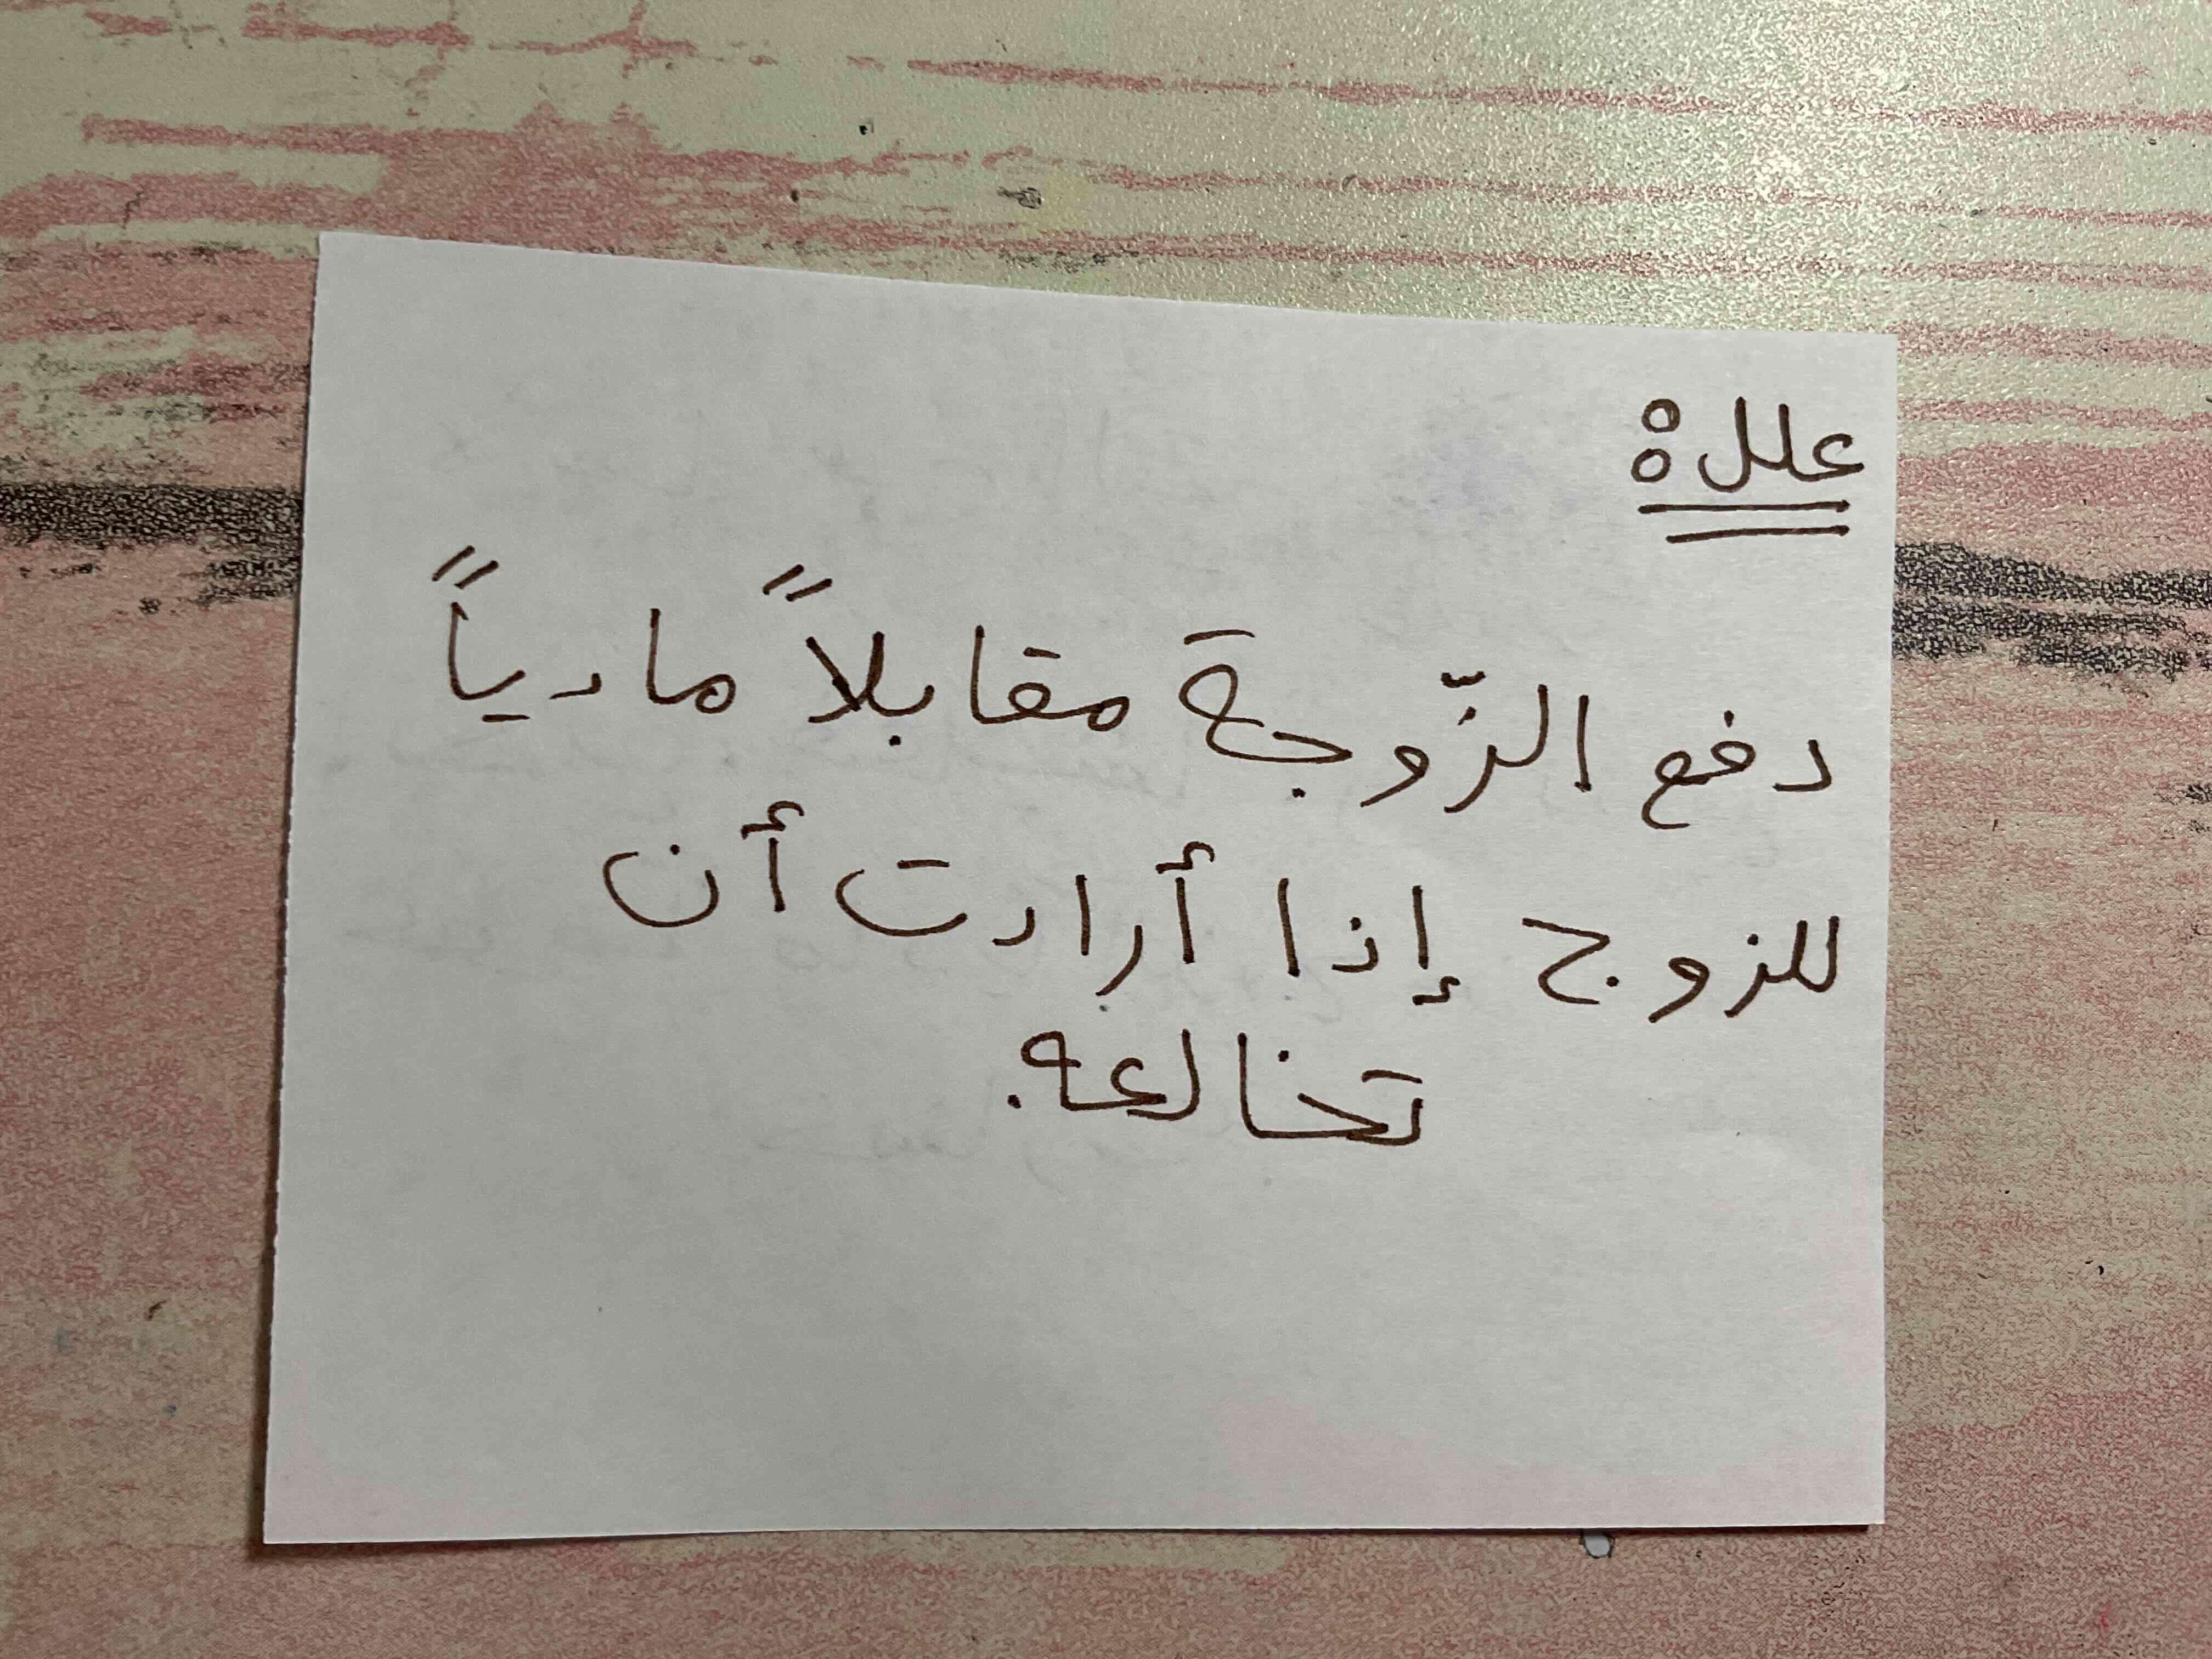 علل:
دفع الزّوجة مقابلاً مادياً
للزوج إذا أرادت أن
تخالعه.